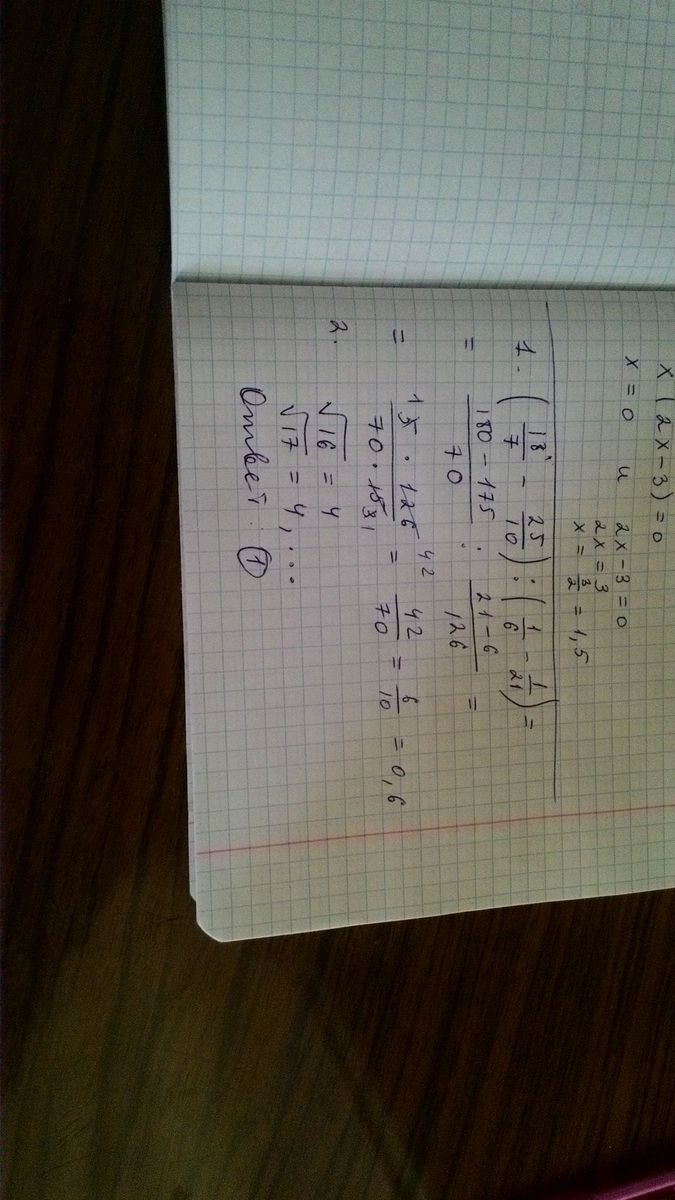 x(2x-3)=0
x=0 и 2x-3=0
2x=3
x=3/2=1,5
1. (18/7 - 25/10) : (1/6 - 1/21) =
= (180-175)/70 : (21-6)/126 =
= (5·126)/(70·15) = 42/70 = 6/10 = 0,6
2. √16 = 4
√17 = 4,...
Ответ: 1